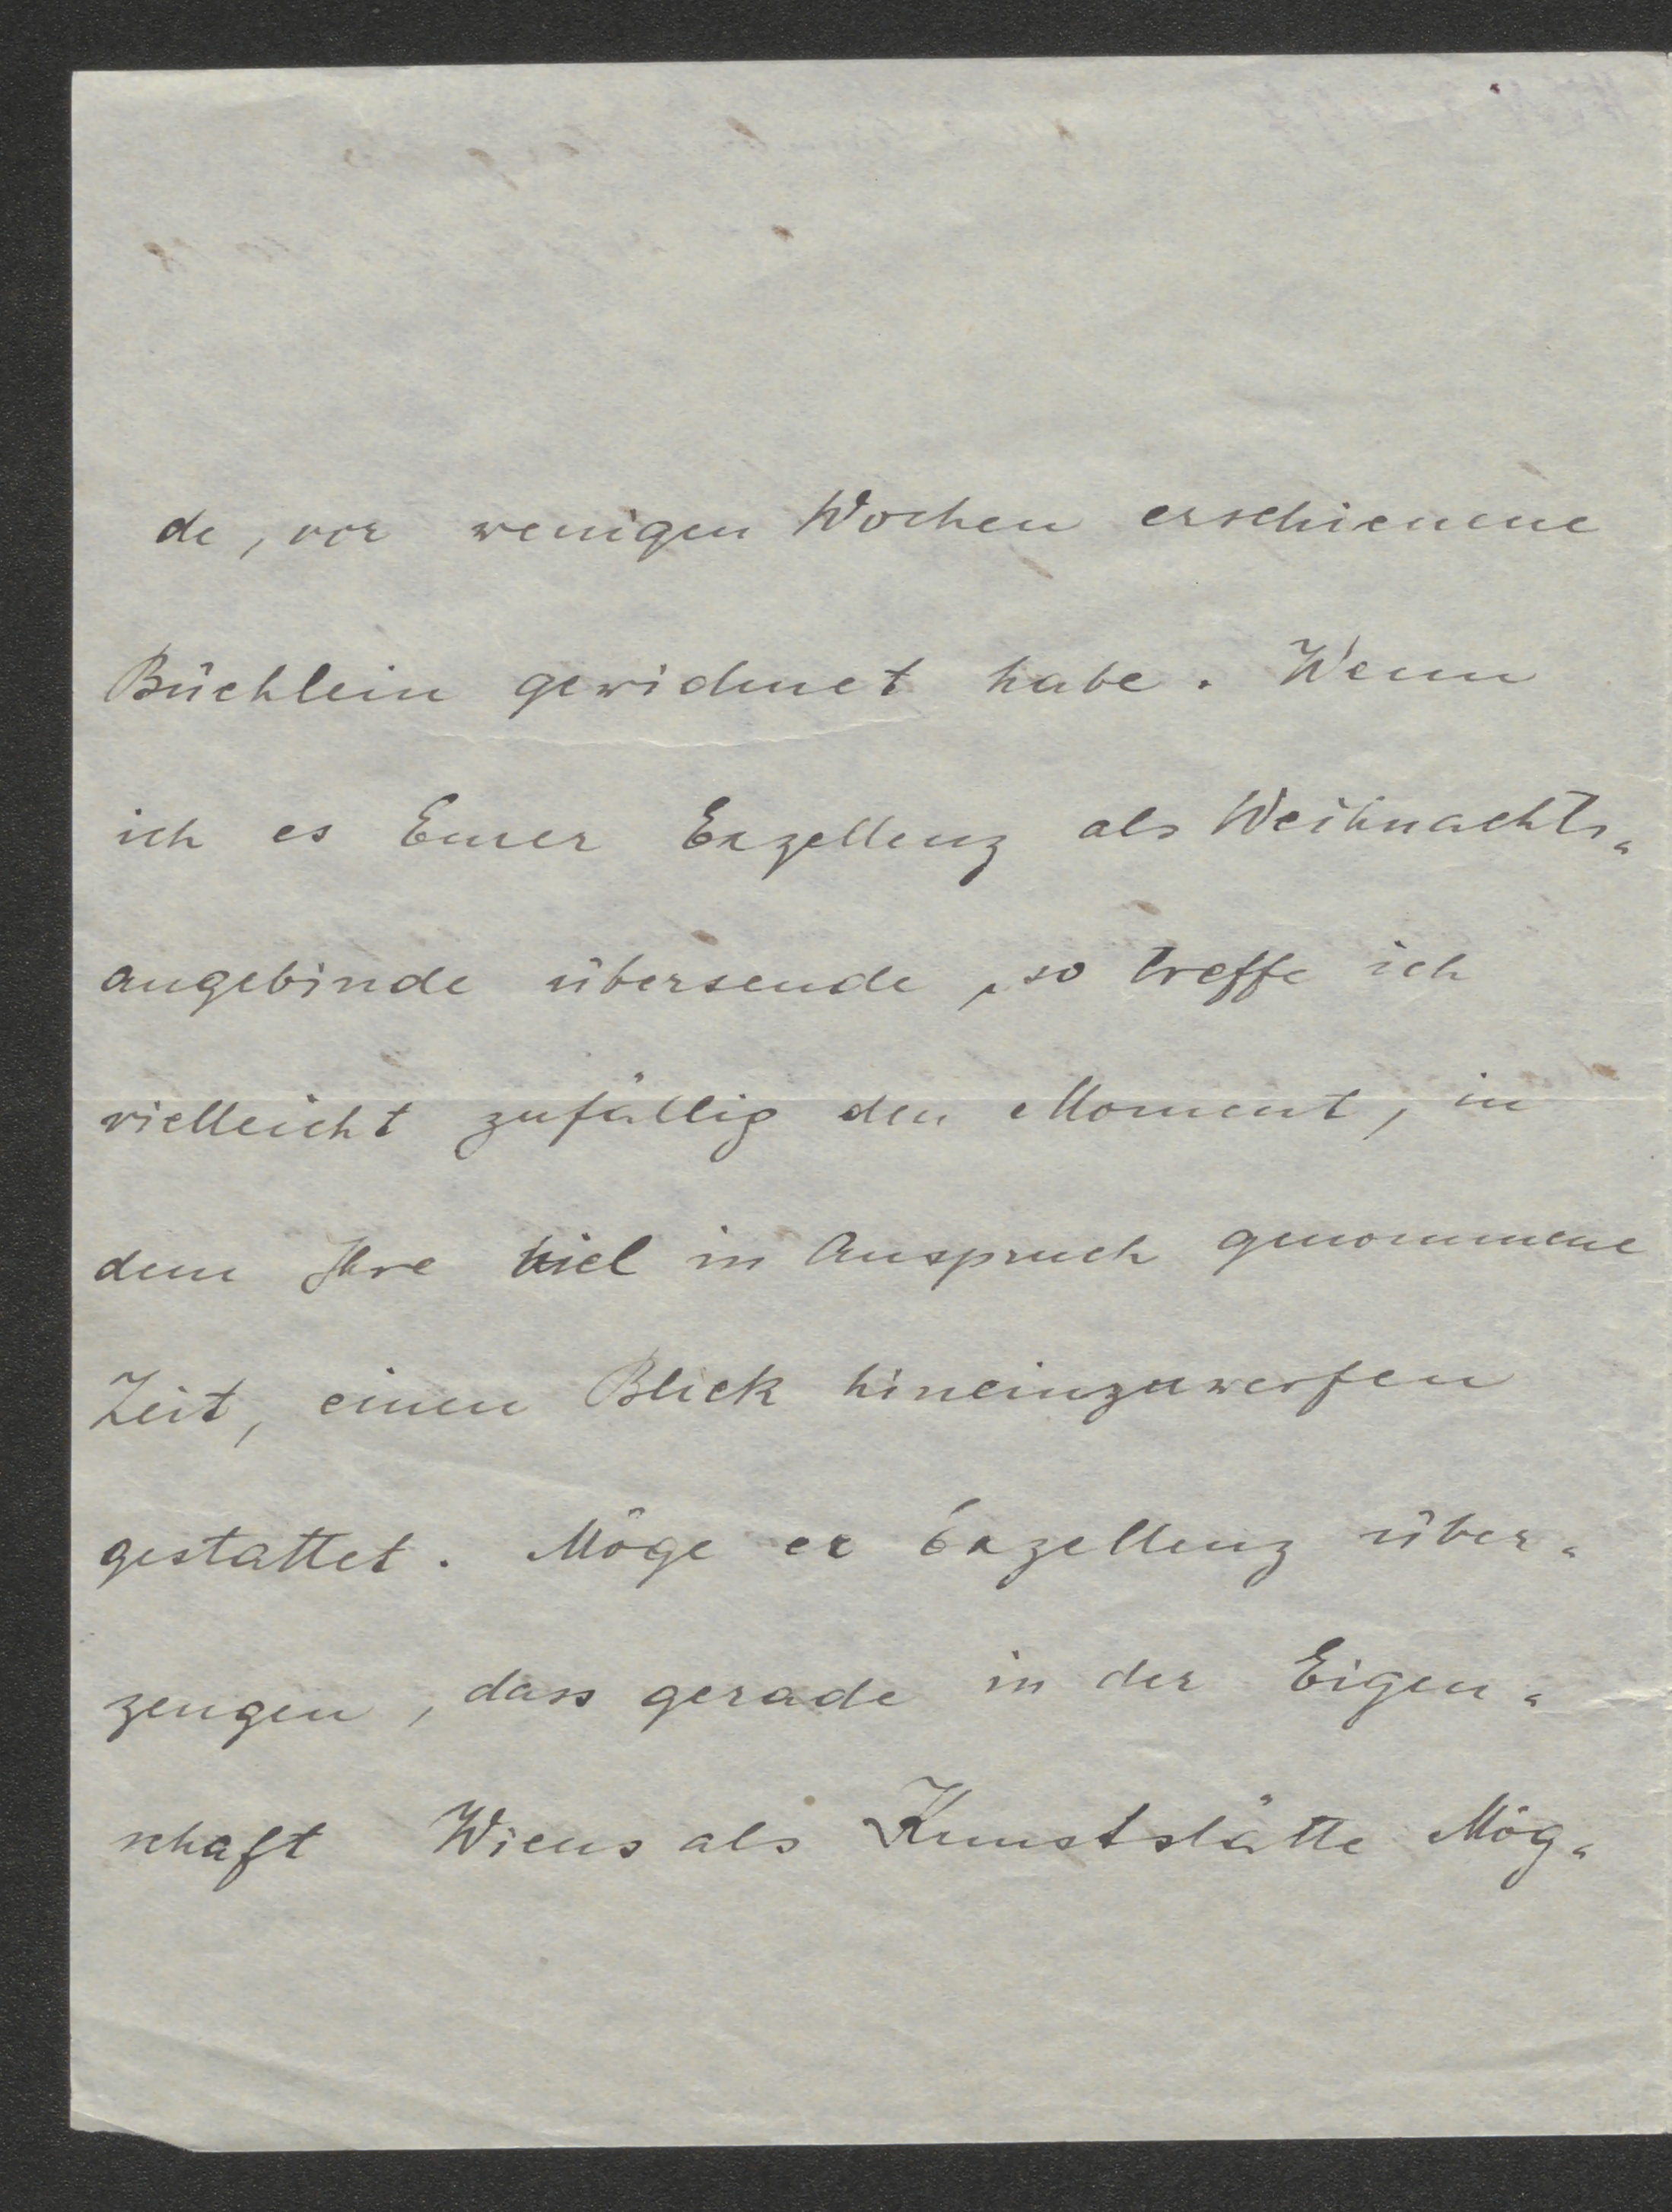 de, vor wenigen Wochen erschienene
Büchlein gewidmet habe. Wenn
ich es Eurer Exzellenz als Weihnachts-
angebinde übersende, so treffe ich
vielleicht zufällig den Moment, in
dem Ihre viel in Anspruch genommene
Zeit, einen Blick hineinzuwerfen
gestattet. Möge er Exzellenz über-
zeugen, dass gerade in der Eigen-
schaft Wiens als Kunststätte Mög-